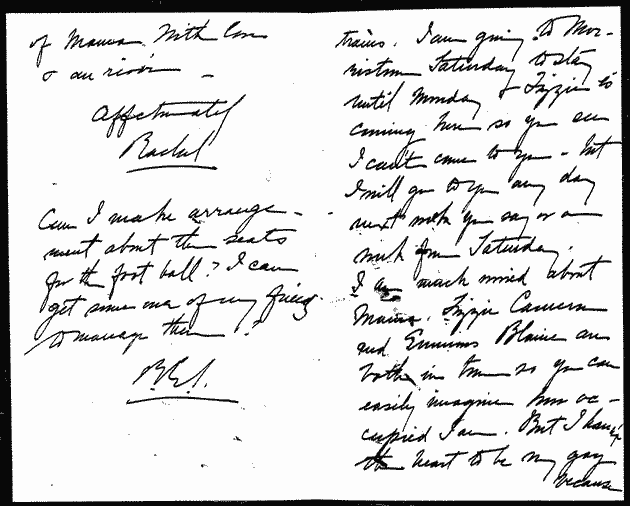 of Mama. With love
& au revoir
Affectionately
Rachel
Can I make arrange-
ment about the seats
for the foot ball? I can
get some one of my friends
to manage them!
R.E.S.
trains. I am going to Mor-
ristown Saturday to stay
until Monday & Lizzie is
coming here so you see
I can't come to you - but
I will go to you any day
next week you say or a
week from Saturday.
I am much mixed about
Mama. Lizzie Cameron
and Emmons Blaine are
both in town so you can
easily imagine how oc-
cupied I am. But I haven't
the heart to be very gay
because